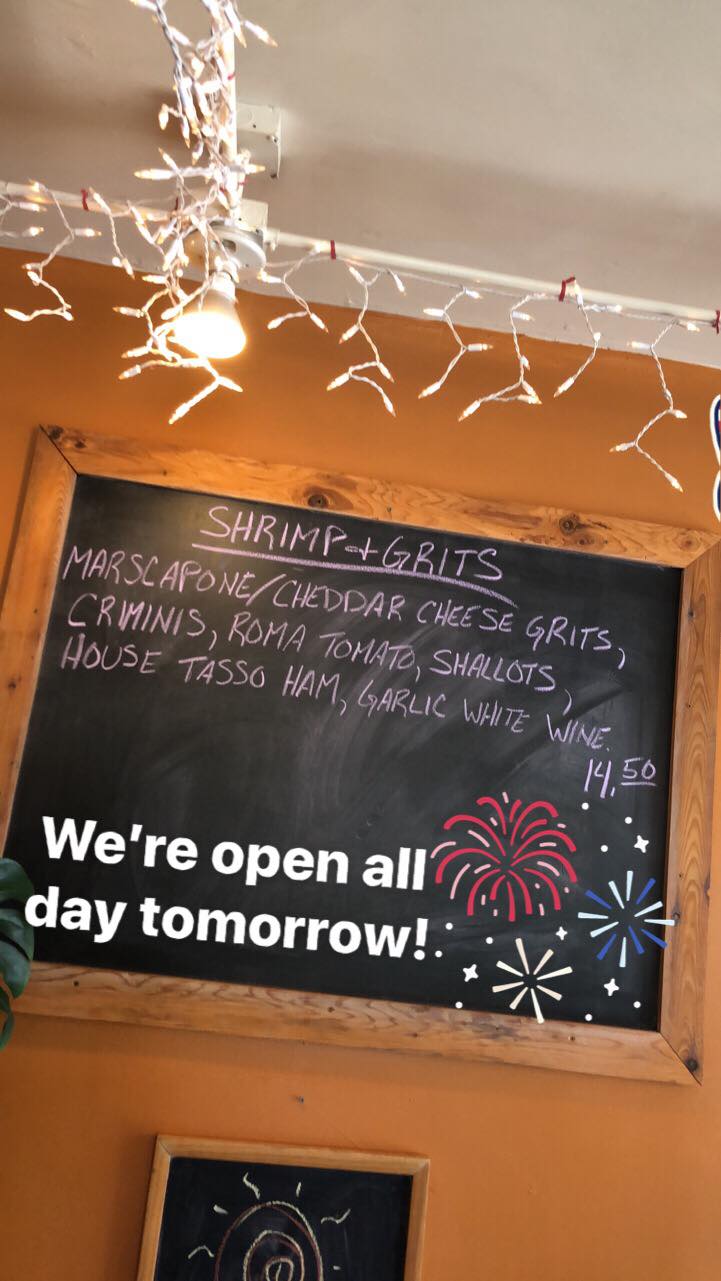 SHRIMP + GRITS
MARSCAPONE/CHEDDAR CHEESE GRITS,
CRIMINIS, ROMA TOMATO, SHALLOTS,
HOUSE TASSO HAM, GARLIC WHITE WINE.
14.50
We're open all
day tomorrow!